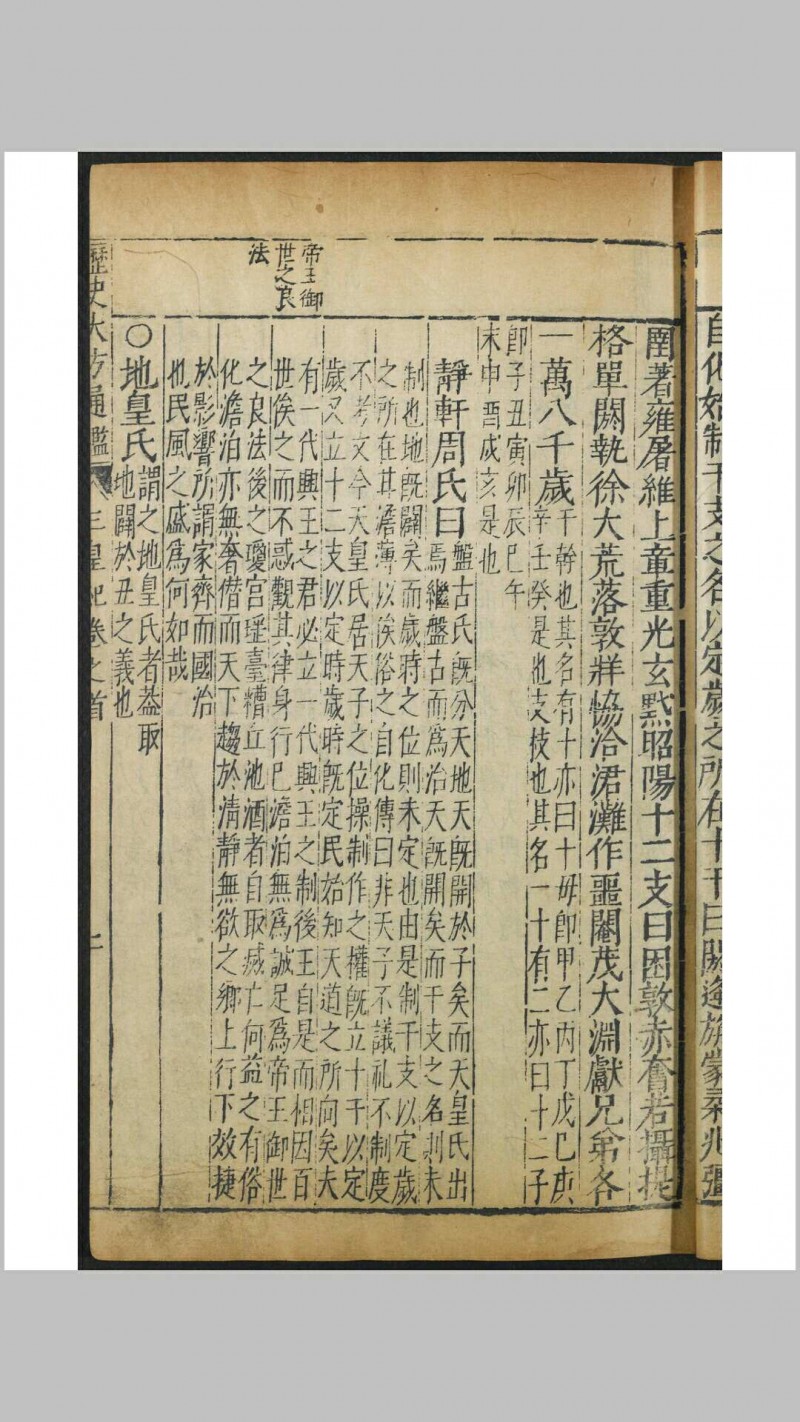 自化始制干支之名以定歲之所在十干曰閼逢旃蒙柔兆彊
圉著雍屠維上章重光玄黓昭陽十二支曰困敦赤奮若攝提
格單閼執徐大荒落敦牂恊洽涒灘作噩閹茂大淵獻兄弟各
一萬八千歲
干幹也其名有十亦曰十母即甲乙丙丁戊己庚
辛壬癸是也支枝也其名一十有二亦曰十二子
即子丑寅卯辰巳午
未申酉戌亥是也
靜軒周氏曰
盤古氏旣分天地天旣開於子矣而天皇氏出
焉繼盤古而爲治天旣開矣而干支之名則未
制也地旣闢矣而歲時之位則未定也由是制干支以定歲
之所在其澹薄以俟俗之自化傳曰非天子不議礼不制度
不考文今天皇氏居天子之位操制作之權旣立十干以定
歲又立十二支以定時歲時旣定民始知天道之所向矣夫
有一代興王之君必立一代興王之制後王自是而相因百
世俟之而不惑觀其律身行己澹泊無爲誠足爲帝王御世
之良法後之瓊宮瑶臺糟丘池酒者自取滅亡何益之有俗
化澹泊亦無奢僣而天下趨於淸靜無欲之鄉上行下效捷
於影響所謂家齊而國治
也民風之盛爲何如哉
帝王御
世之良
法
〇地皇氏
謂之地皇氏者蓋取
地闢於丑之義也
歷史大方通鑑
三皇紀卷之首
二